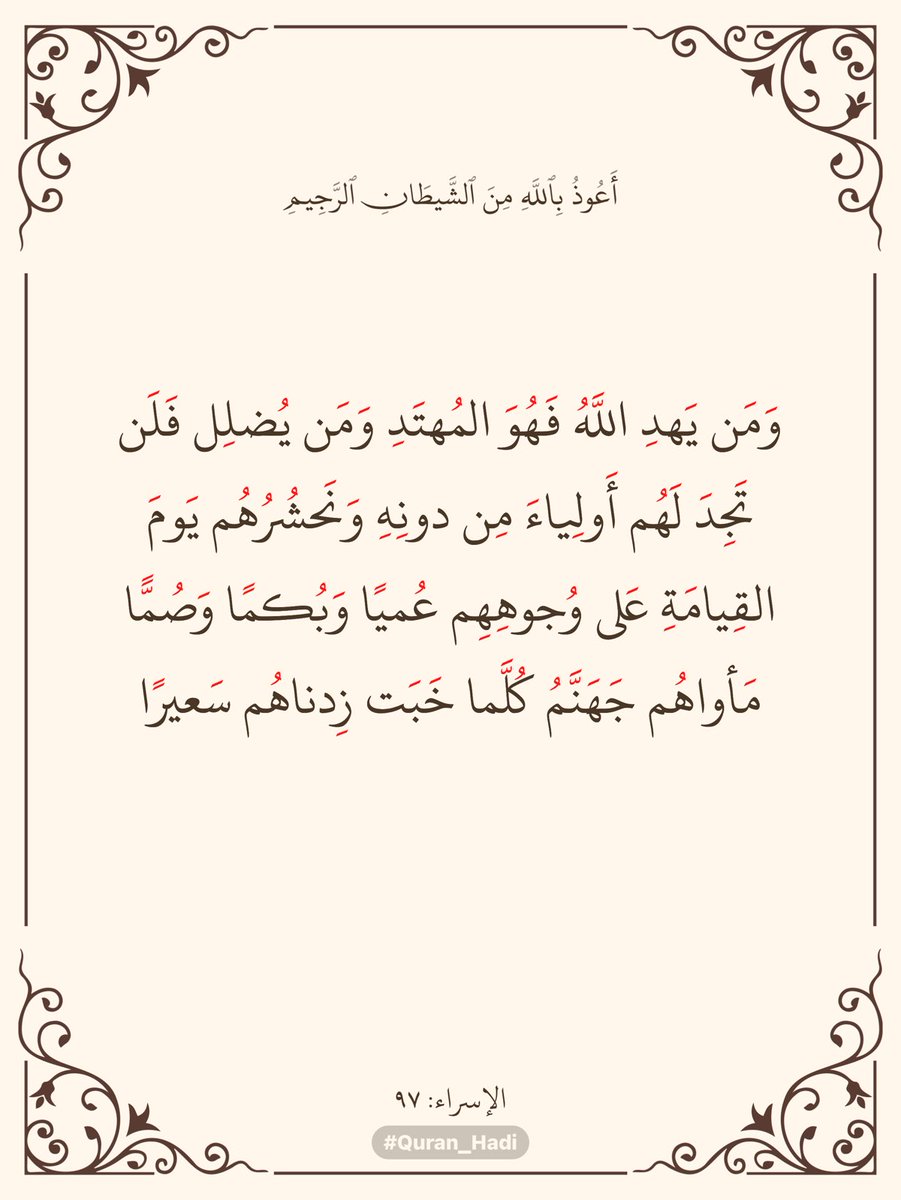 أَعُوذُ بِٱللَّهِ مِنَ ٱلشَّيطَانِ ٱلرَّجِيمِ
وَمَن يَهدِ اللَّهُ فَهُوَ المُهتَدِ وَمَن يُضلِل فَلَن
تَجِدَ لَهُم أَولِياءَ مِن دونِهِ وَنَحشُرُهُم يَومَ
القِيامَةِ عَلى وُجوهِهِم عُميًا وَبُكمًا وَصُمًّا
مَأواهُم جَهَنَّمُ كُلَّما خَبَت زِدناهُم سَعيرًا
الإسراء: ٩٧
#Quran_Hadi